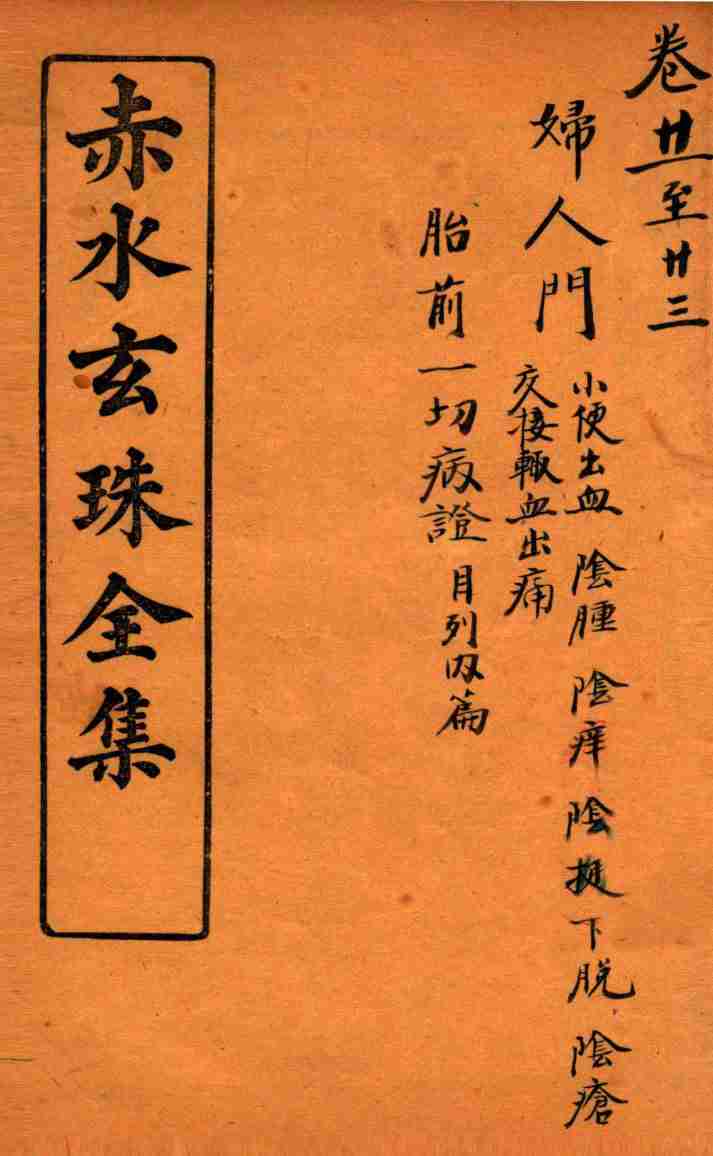 卷廿一至廿三
婦人門
小便出血 陰腫 陰痒 陰挺下脱 陰瘡
交接輙血出痛
胎前一切病證 目列内篇
赤水玄珠全集